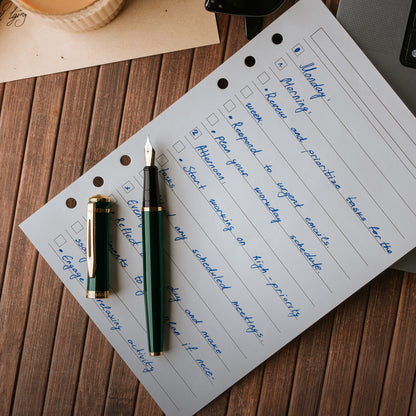 Monday,
Morning,
• Review and prioritize tasks for the
week
• Respond to urgent emails.
• Plan your workday schedule.
2 Afternoon,
• Start working on high-priority
tasks
any scheduled meetings.
day and make
if nece.
• Engage relaxing activity